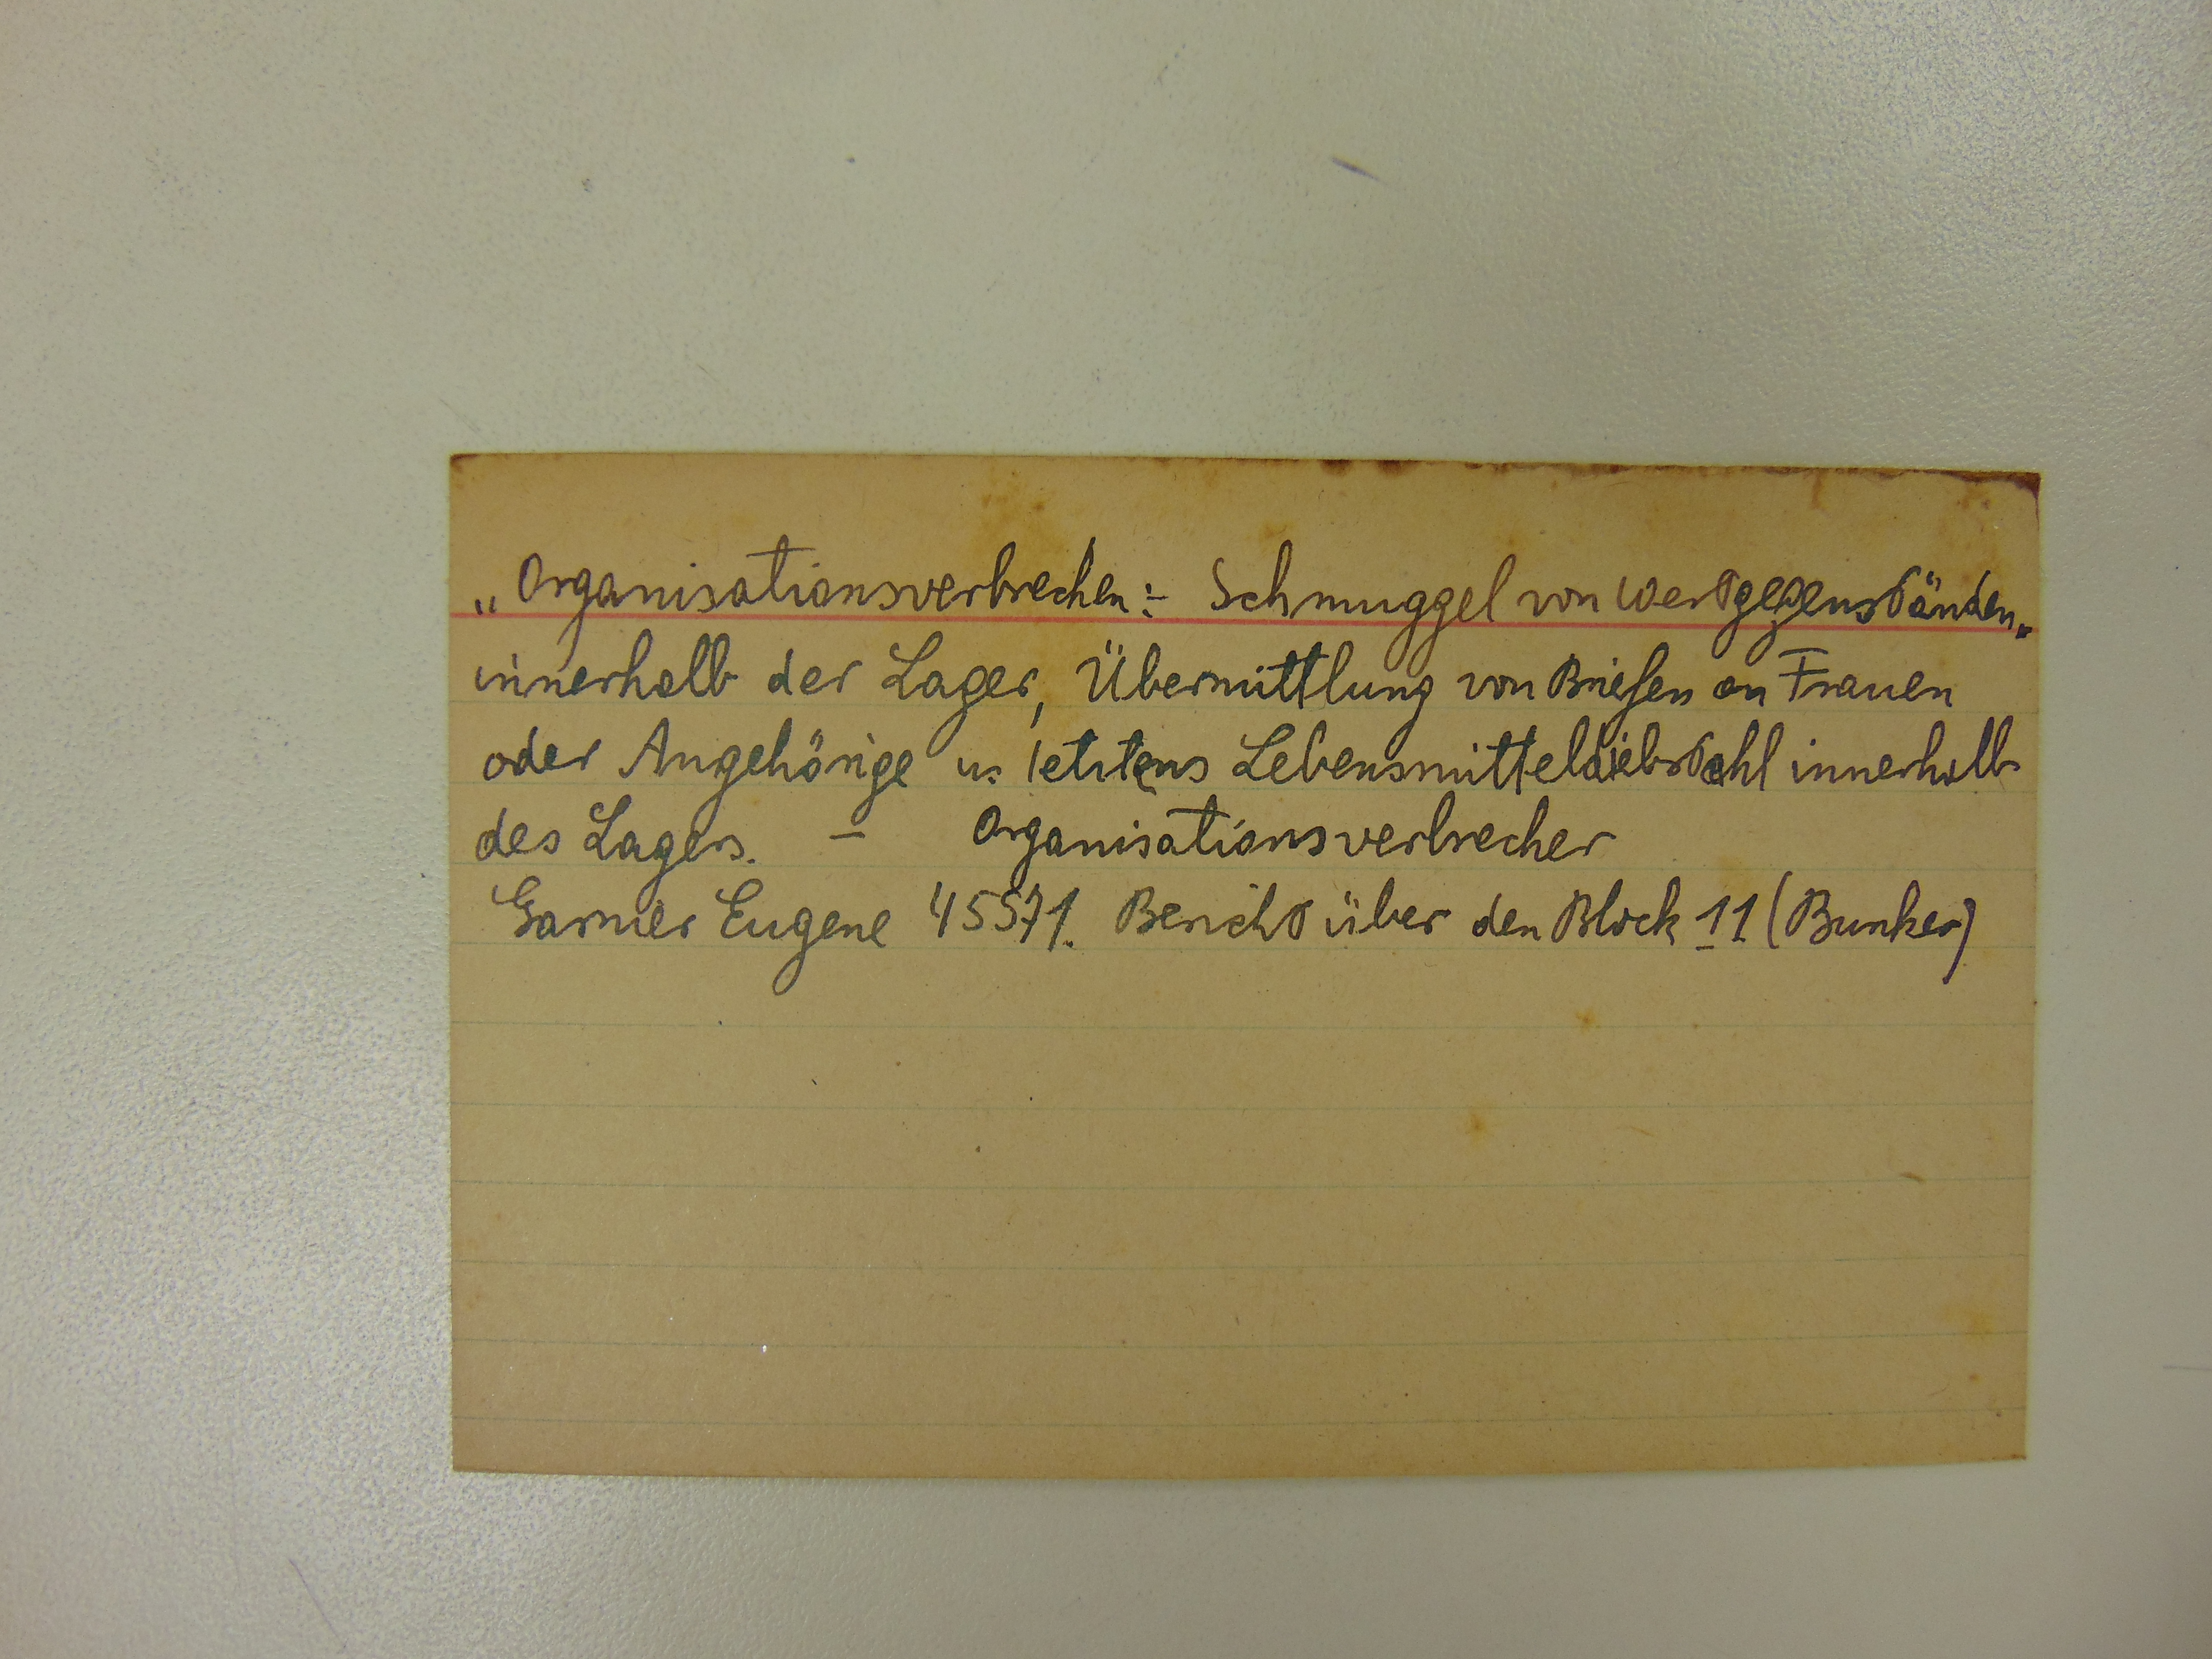 „Organisationsverbrechen:- Schmuggel von Wertgegenständen„
innerhalb der Lager, Übermittlung von Briefen an Frauen
oder Angehörige u. letztens Lebensmitteldiebstahl innerhalb
des Lagers. — Organisationsverbrecher
Garnier Eugene 45571. Bericht über den Block 11 (Bunker)